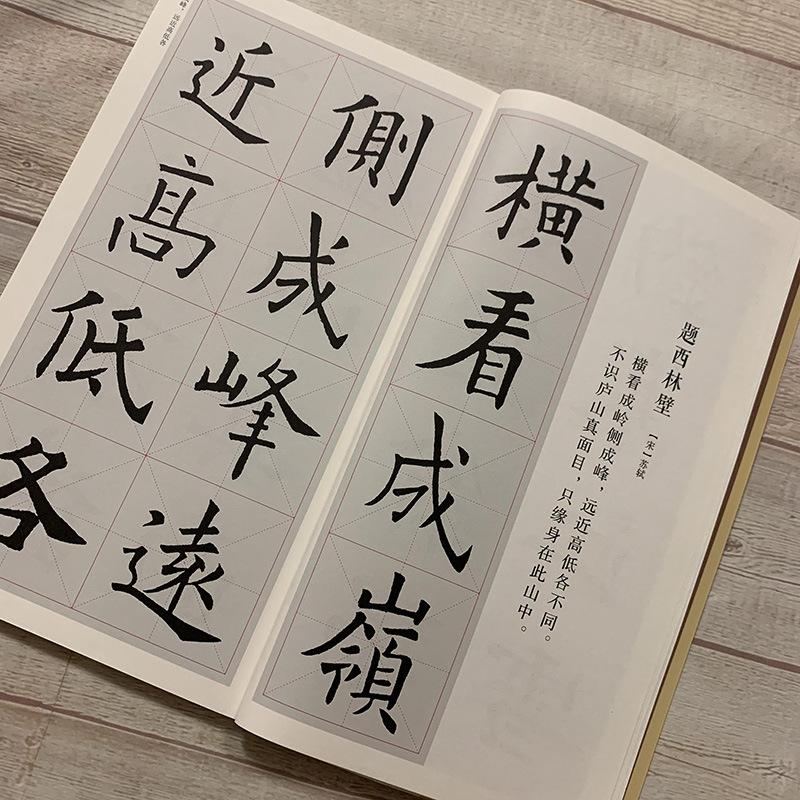 题西林壁
【宋】苏轼
横看成岭侧成峰，远近高低各不同。
不识庐山真面目，只缘身在此山中。
橫看成嶺
側成峰遠
近高低各
峰，远近高低各